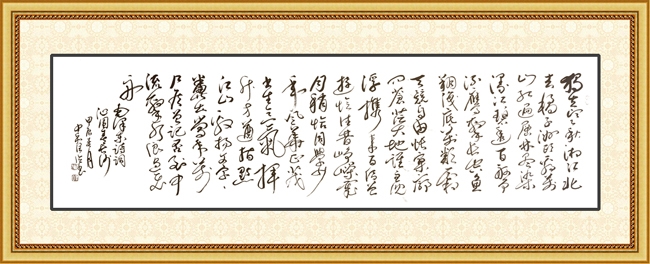 独立寒秋湘江北
去橘子洲头看万
山红遍层林尽染
漫江碧透百舸争
流鹰击长空鱼
翔浅底万类霜
天竞自由怅寥廓
问苍茫大地谁主沉
浮携来百侣曾
游忆往昔峥嵘岁
月稠恰同学少
年风华正茂
书生意气挥
斥方遒指点
江山激扬文字
粪土当年万
户侯曾记否到中
流击水浪遏飞
舟
毛泽东诗词
沁园春长沙